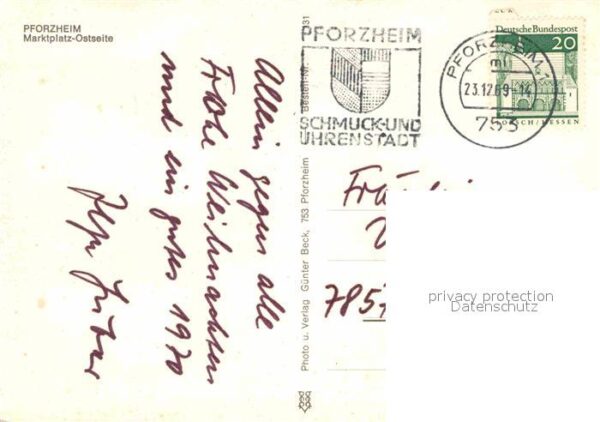 PFORZHEIM
Marktplatz-Ostseite
Allein gegen alle
Frohe Weihnachten
und ein gutes 1970
Bestell-Nr. 31
Photo u. Verlag Günter Beck, 753 Pforzheim
PFORZHEIM
SCHMUCK-UND
UHRENSTADT
PFORZHEIM
23.12.69-14
753
Deutsche Bundespost
20
LORSCH/HESSEN
785
privacy protection
Datenschutz